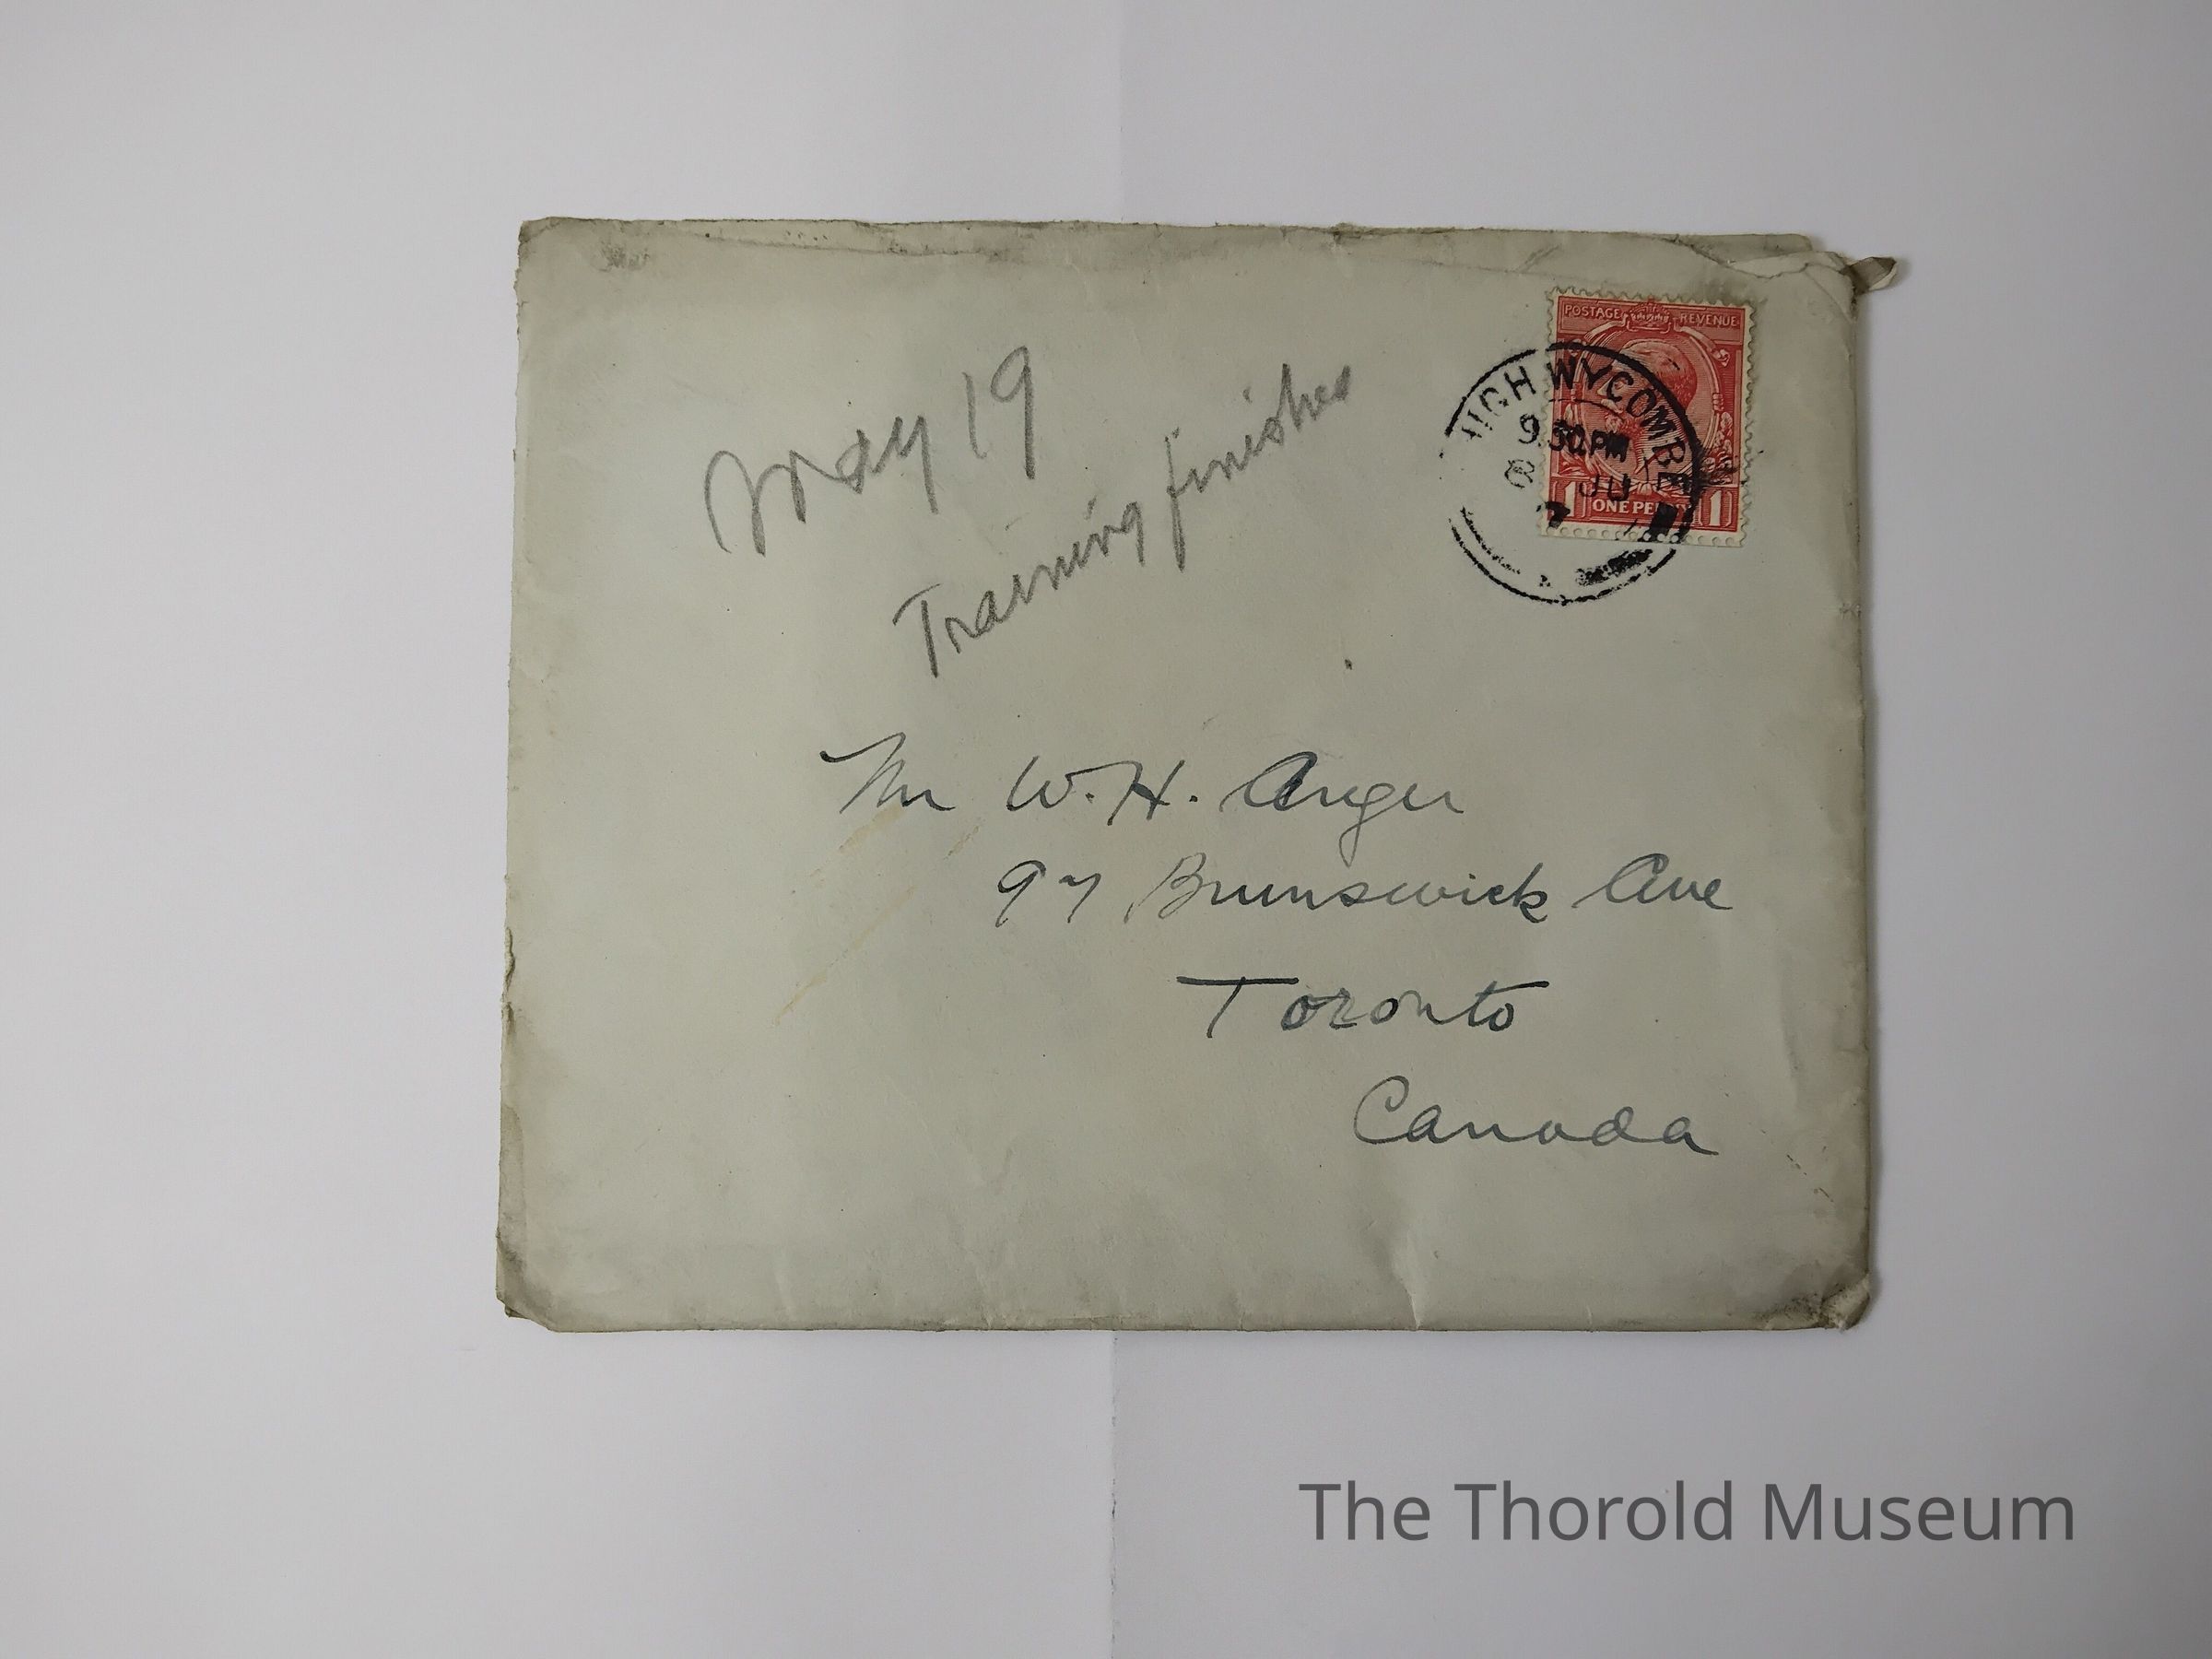 May 19
Training finishes
POSTAGE REVENUE
HIGH WYCOMBE
9.30 PM
8 JU
1 ONE PENNY 1
Mr W. H. Anger
97 Brunswick Ave
Toronto
Canada
The Thorold Museum